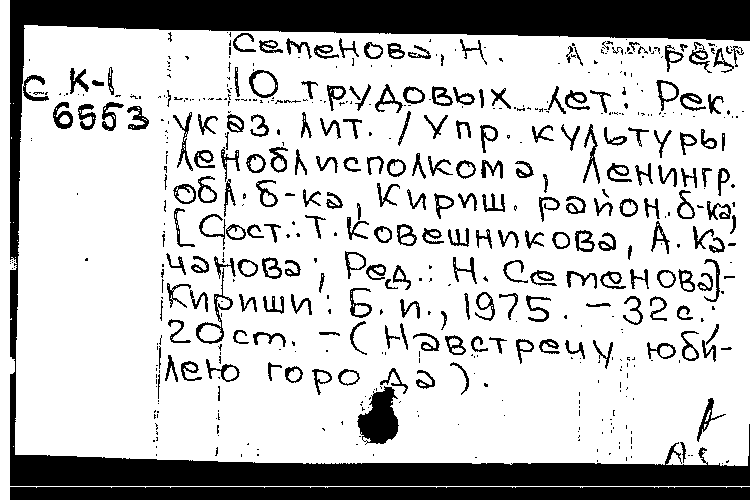 Семенова, Н. А. ред.
С К-1
6553
10 трудовых лет: Рек.
указ. лит. / Упр. культуры
Леноблисполкома, Ленингр.
обл. б-ка, Кириш. район. б-ка;
[Сост.: Т. Ковешникова, А. Ка-
чанова; Ред.: Н. Семенова].-
Кириши: Б. и., 1975. - 32 с.;
20 ст. - (Навстречу юби-
лею города).